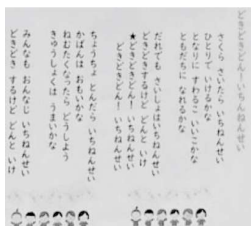 どきどきどん！いちねんせい
さくら さいたら いちねんせい
ひとりで いけるかな
となりに すわるこ いいこかな
ともだちに なれるかな
だれでも さいしょは いちねんせい
どきどきするけど どんと いけ
★どきどきどん！ いちねんせい
どきどきどん！ いちねんせい
ちょうちょ とんだら いちねんせい
かばんは おもいかな
ねむたくなったら どうしよう
きゅうしょくは うまいかな
みんなも おんなじ いちねんせい
どきどき するけど どんと いけ